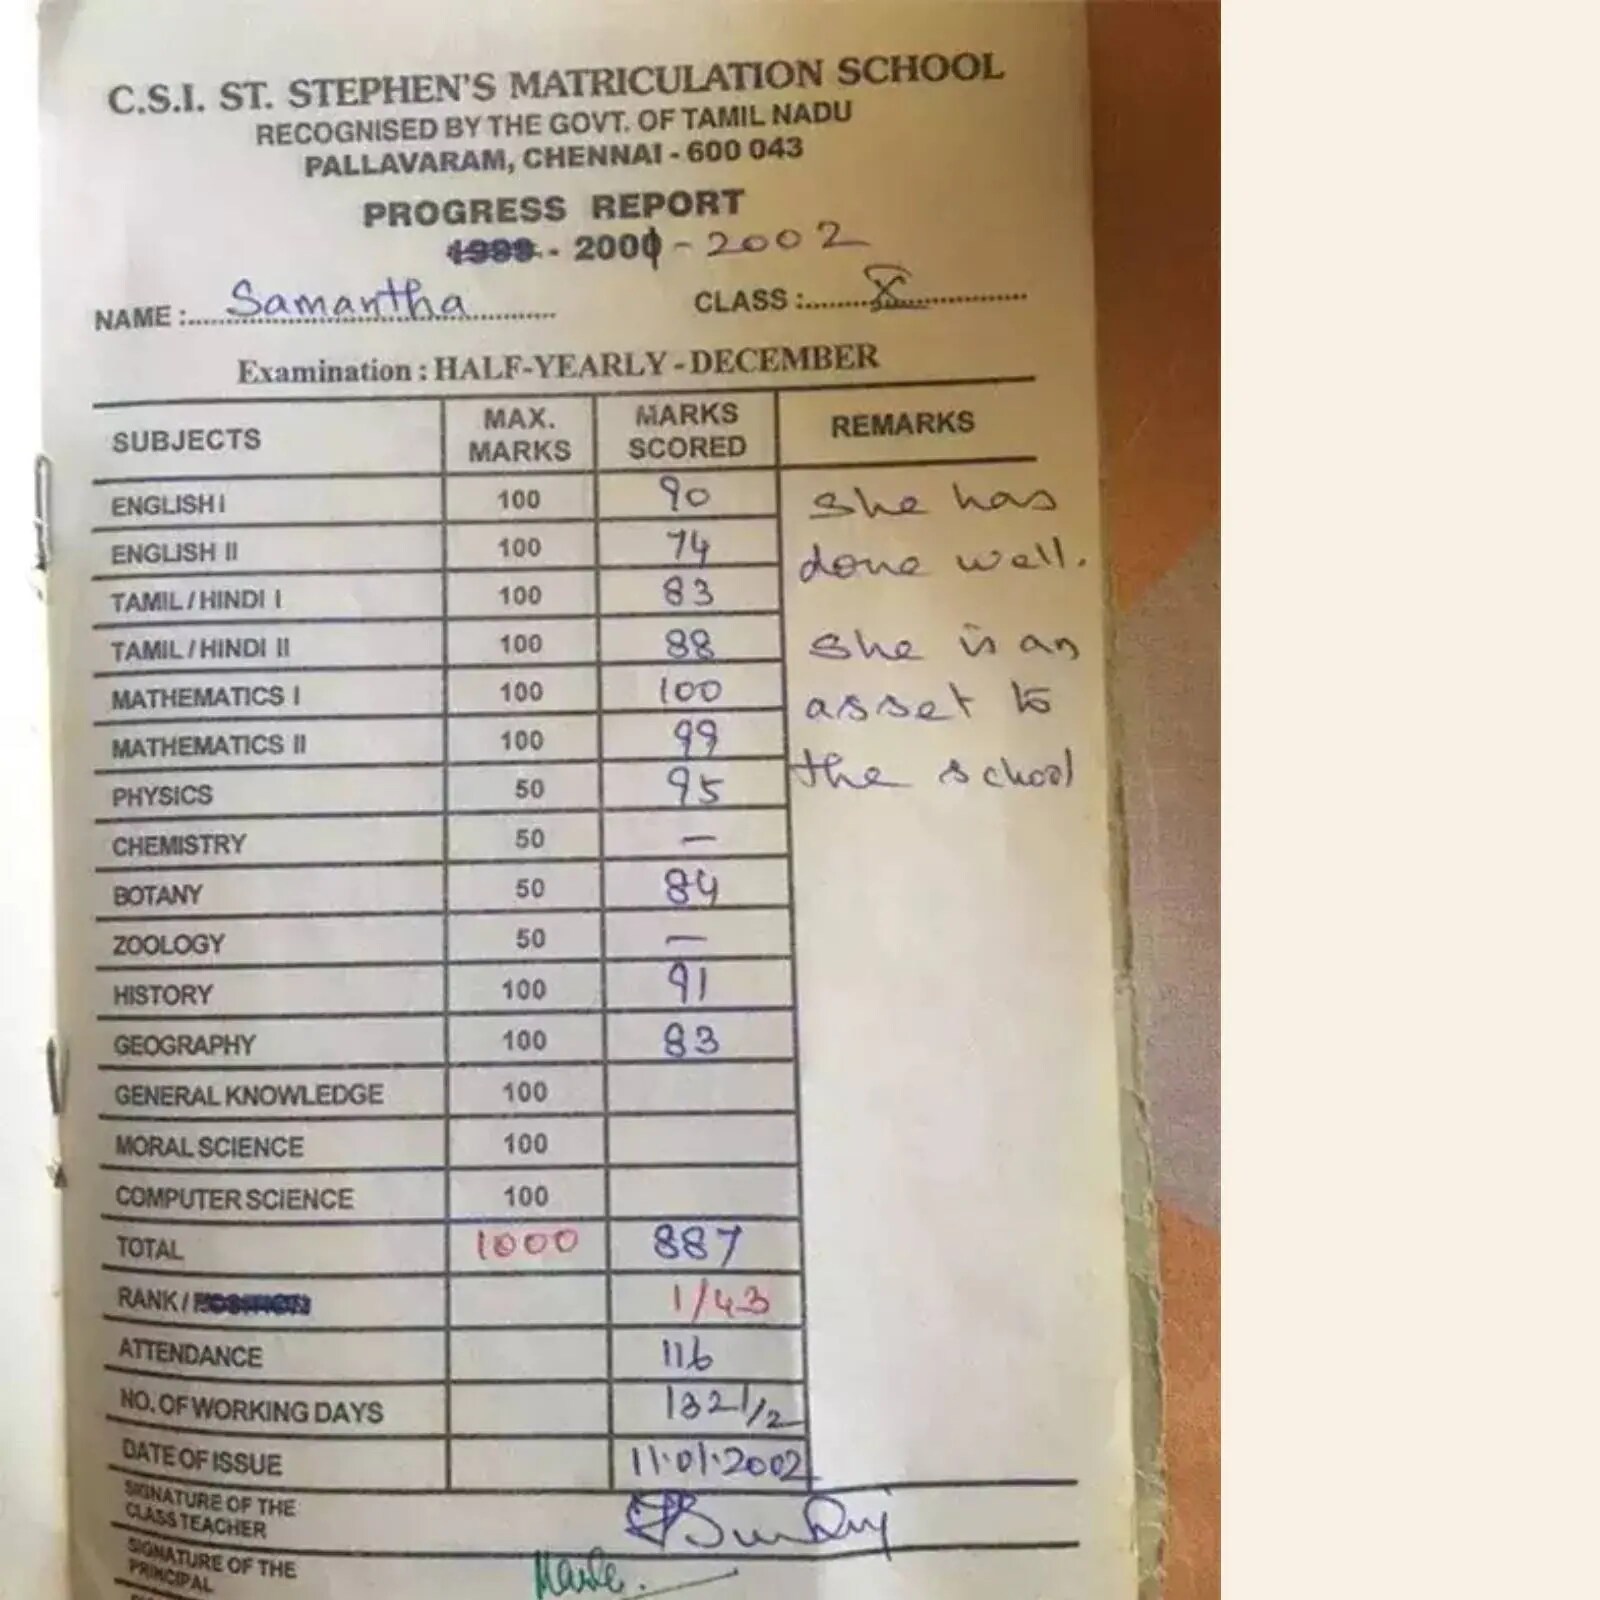 C.S.I. ST. STEPHEN'S MATRICULATION SCHOOL
RECOGNISED BY THE GOVT. OF TAMIL NADU
PALLAVARAM, CHENNAI - 600 043
PROGRESS REPORT
1999 - 2001 - 2002
NAME : Samantha CLASS : X
Examination : HALF-YEARLY - DECEMBER
SUBJECTS MAX. MARKS MARKS SCORED REMARKS
ENGLISH I 100 90 She has
ENGLISH II 100 74 done well.
TAMIL / HINDI I 100 83
TAMIL / HINDI II 100 88 She is an
MATHEMATICS I 100 100 asset to
MATHEMATICS II 100 99 the school
PHYSICS 50 95
CHEMISTRY 50 —
BOTANY 50 84
ZOOLOGY 50 —
HISTORY 100 91
GEOGRAPHY 100 83
GENERAL KNOWLEDGE 100
MORAL SCIENCE 100
COMPUTER SCIENCE 100
TOTAL 1000 887
RANK / POSITION 1/43
ATTENDANCE 116
NO. OF WORKING DAYS 132 1/2
DATE OF ISSUE 11.01.2002
SIGNATURE OF THE
CLASS TEACHER
SIGNATURE OF THE
PRINCIPAL